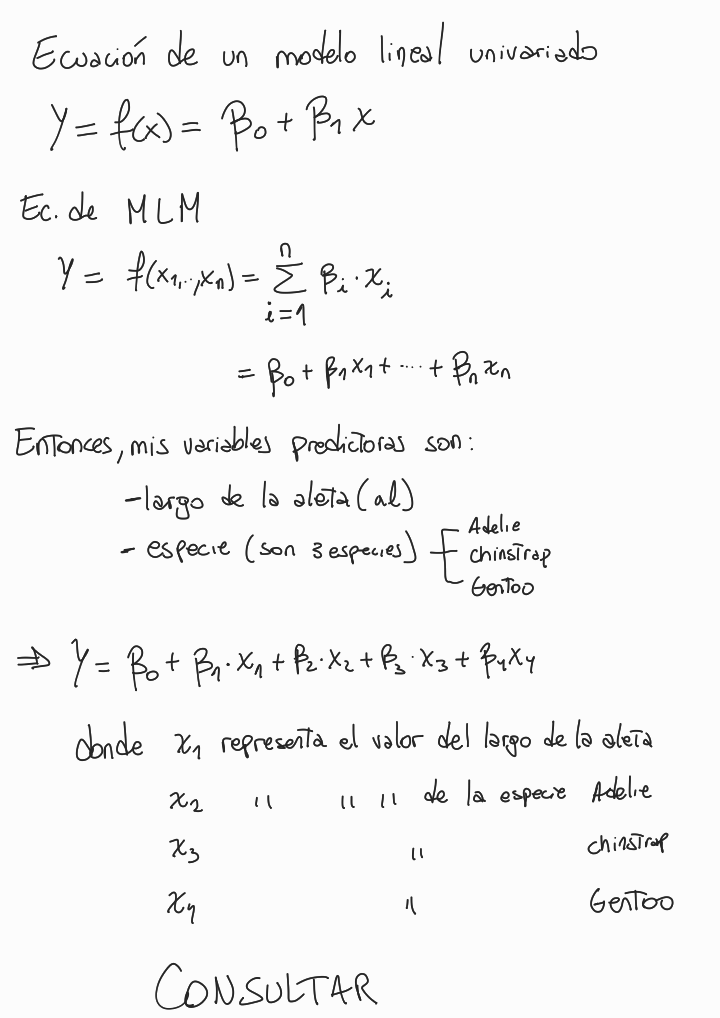 Ecuación de un modelo lineal univariado
Y = f(x) = β₀ + β₁ x
Ec. de MLM
Y = f(x₁,..,xₙ) = ∑ᵢ₌₁ⁿ βᵢ · xᵢ
= β₀ + β₁x₁ + ···· + βₙ xₙ
Entonces, mis variables predictoras son:
- largo de la aleta (al)
- especie (son 3 especies)
Adelie
chinstrap
Gentoo
⇒ Y = β₀ + β₁ · x₁ + β₂ · x₂ + β₃ · x₃ + β₄x₄
donde x₁ representa el valor del largo de la aleta
x₂ " " " de la especie Adelie
x₃ " chinstrap
x₄ " Gentoo
CONSULTAR